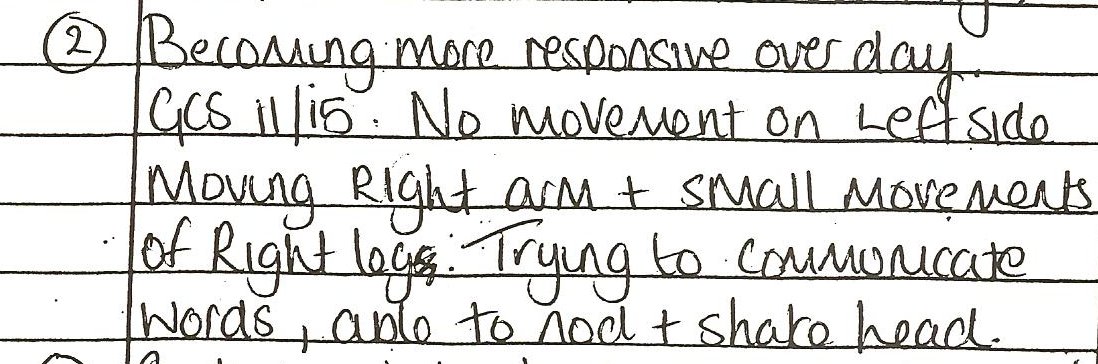 ② Becoming more responsive over day.
GCS 11/15. No movement on Left side
Moving Right arm + small movements
of Right leg. Trying to communicate
words, able to nod + shake head.